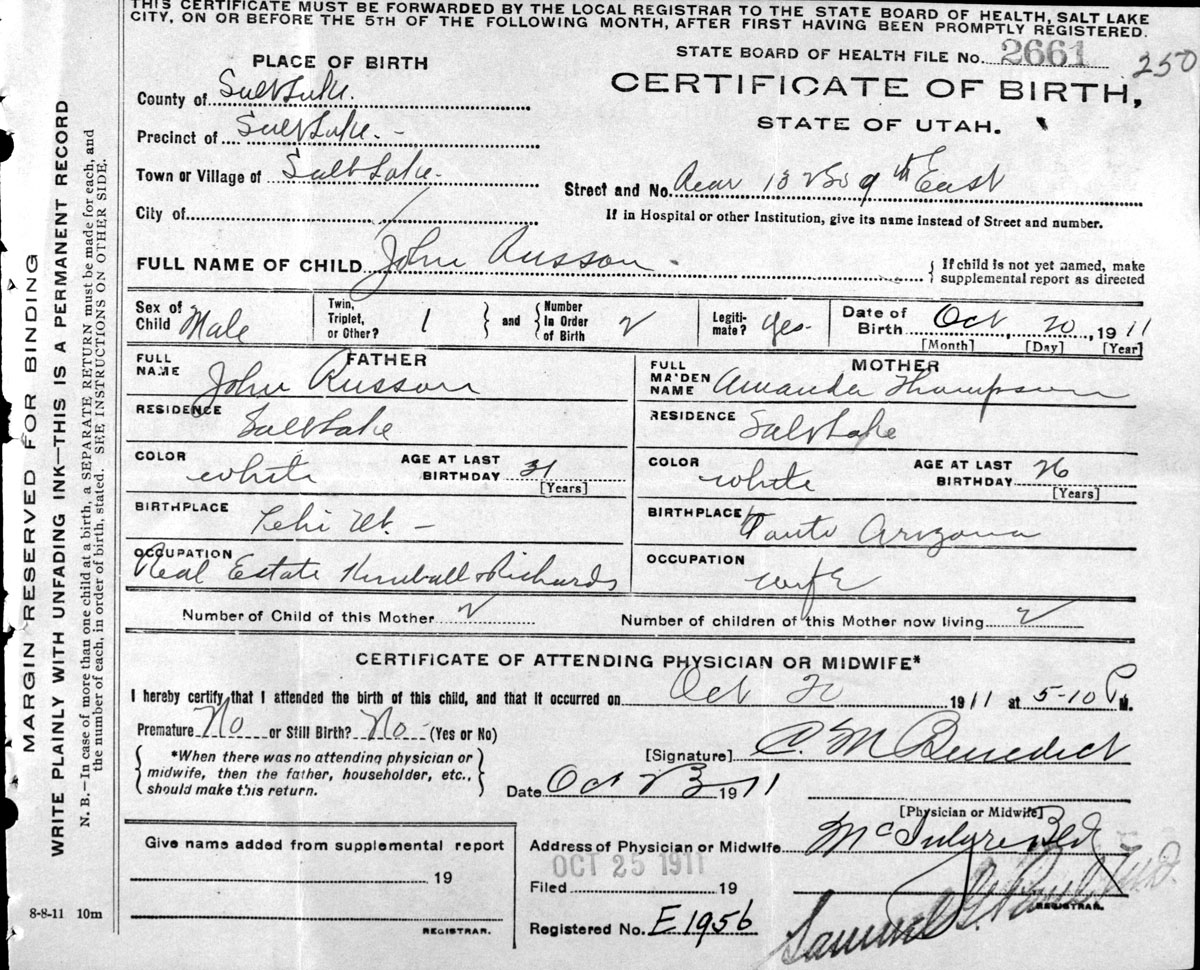 THIS CERTIFICATE MUST BE FORWARDED BY THE LOCAL REGISTRAR TO THE STATE BOARD OF HEALTH, SALT LAKE
CITY, ON OR BEFORE THE 5TH OF THE FOLLOWING MONTH, AFTER FIRST HAVING BEEN PROMPTLY REGISTERED.
STATE BOARD OF HEALTH FILE No. 2661 250
PLACE OF BIRTH
CERTIFICATE OF BIRTH,
STATE OF UTAH.
County of Salt Lake.
Precinct of Salt Lake.
Town or Village of Salt Lake.
Street and No. Rear 9th East
City of
If in Hospital or other Institution, give its name instead of Street and number.
FULL NAME OF CHILD John Russon
If child is not yet named, make
supplemental report as directed
Sex of Child Male
Twin, Triplet, or Other? 1 and Number In Order of Birth 2
Legiti-mate? Yes
Date of Birth Oct 20, 1911
[Month] [Day] [Year]
FATHER
FULL NAME John Russon
RESIDENCE Salt Lake
COLOR white
AGE AT LAST BIRTHDAY 31
[Years]
BIRTHPLACE Lehi Ut.
OCCUPATION Real Estate Kimball & Richards
MOTHER
FULL MAIDEN NAME Amanda Thompson
RESIDENCE Salt Lake
COLOR white
AGE AT LAST BIRTHDAY 26
[Years]
BIRTHPLACE Arizona
OCCUPATION wife
Number of Child of this Mother 2
Number of children of this Mother now living 2
CERTIFICATE OF ATTENDING PHYSICIAN OR MIDWIFE*
I hereby certify that I attended the birth of this child, and that it occurred on Oct 20 1911 at 5-10 P M.
Premature No or Still Birth? No (Yes or No)
*When there was no attending physician or
midwife, then the father, householder, etc.,
should make this return.
[Signature] C. M Benedict
Date Oct 23 1911
[Physician or Midwife]
Address of Physician or Midwife McIntyre Bld
OCT 25 1911
Filed 19
REGISTRAR.
Registered No. E1956
Samuel G. Paul M.D.
Give name added from supplemental report
19
REGISTRAR.
8-8-11 10m
MARGIN RESERVED FOR BINDING
WRITE PLAINLY WITH UNFADING INK—THIS IS A PERMANENT RECORD
N. B.—In case of more than one child at a birth, a SEPARATE RETURN must be made for each, and
the number of each, in order of birth, stated. SEE INSTRUCTIONS ON OTHER SIDE.